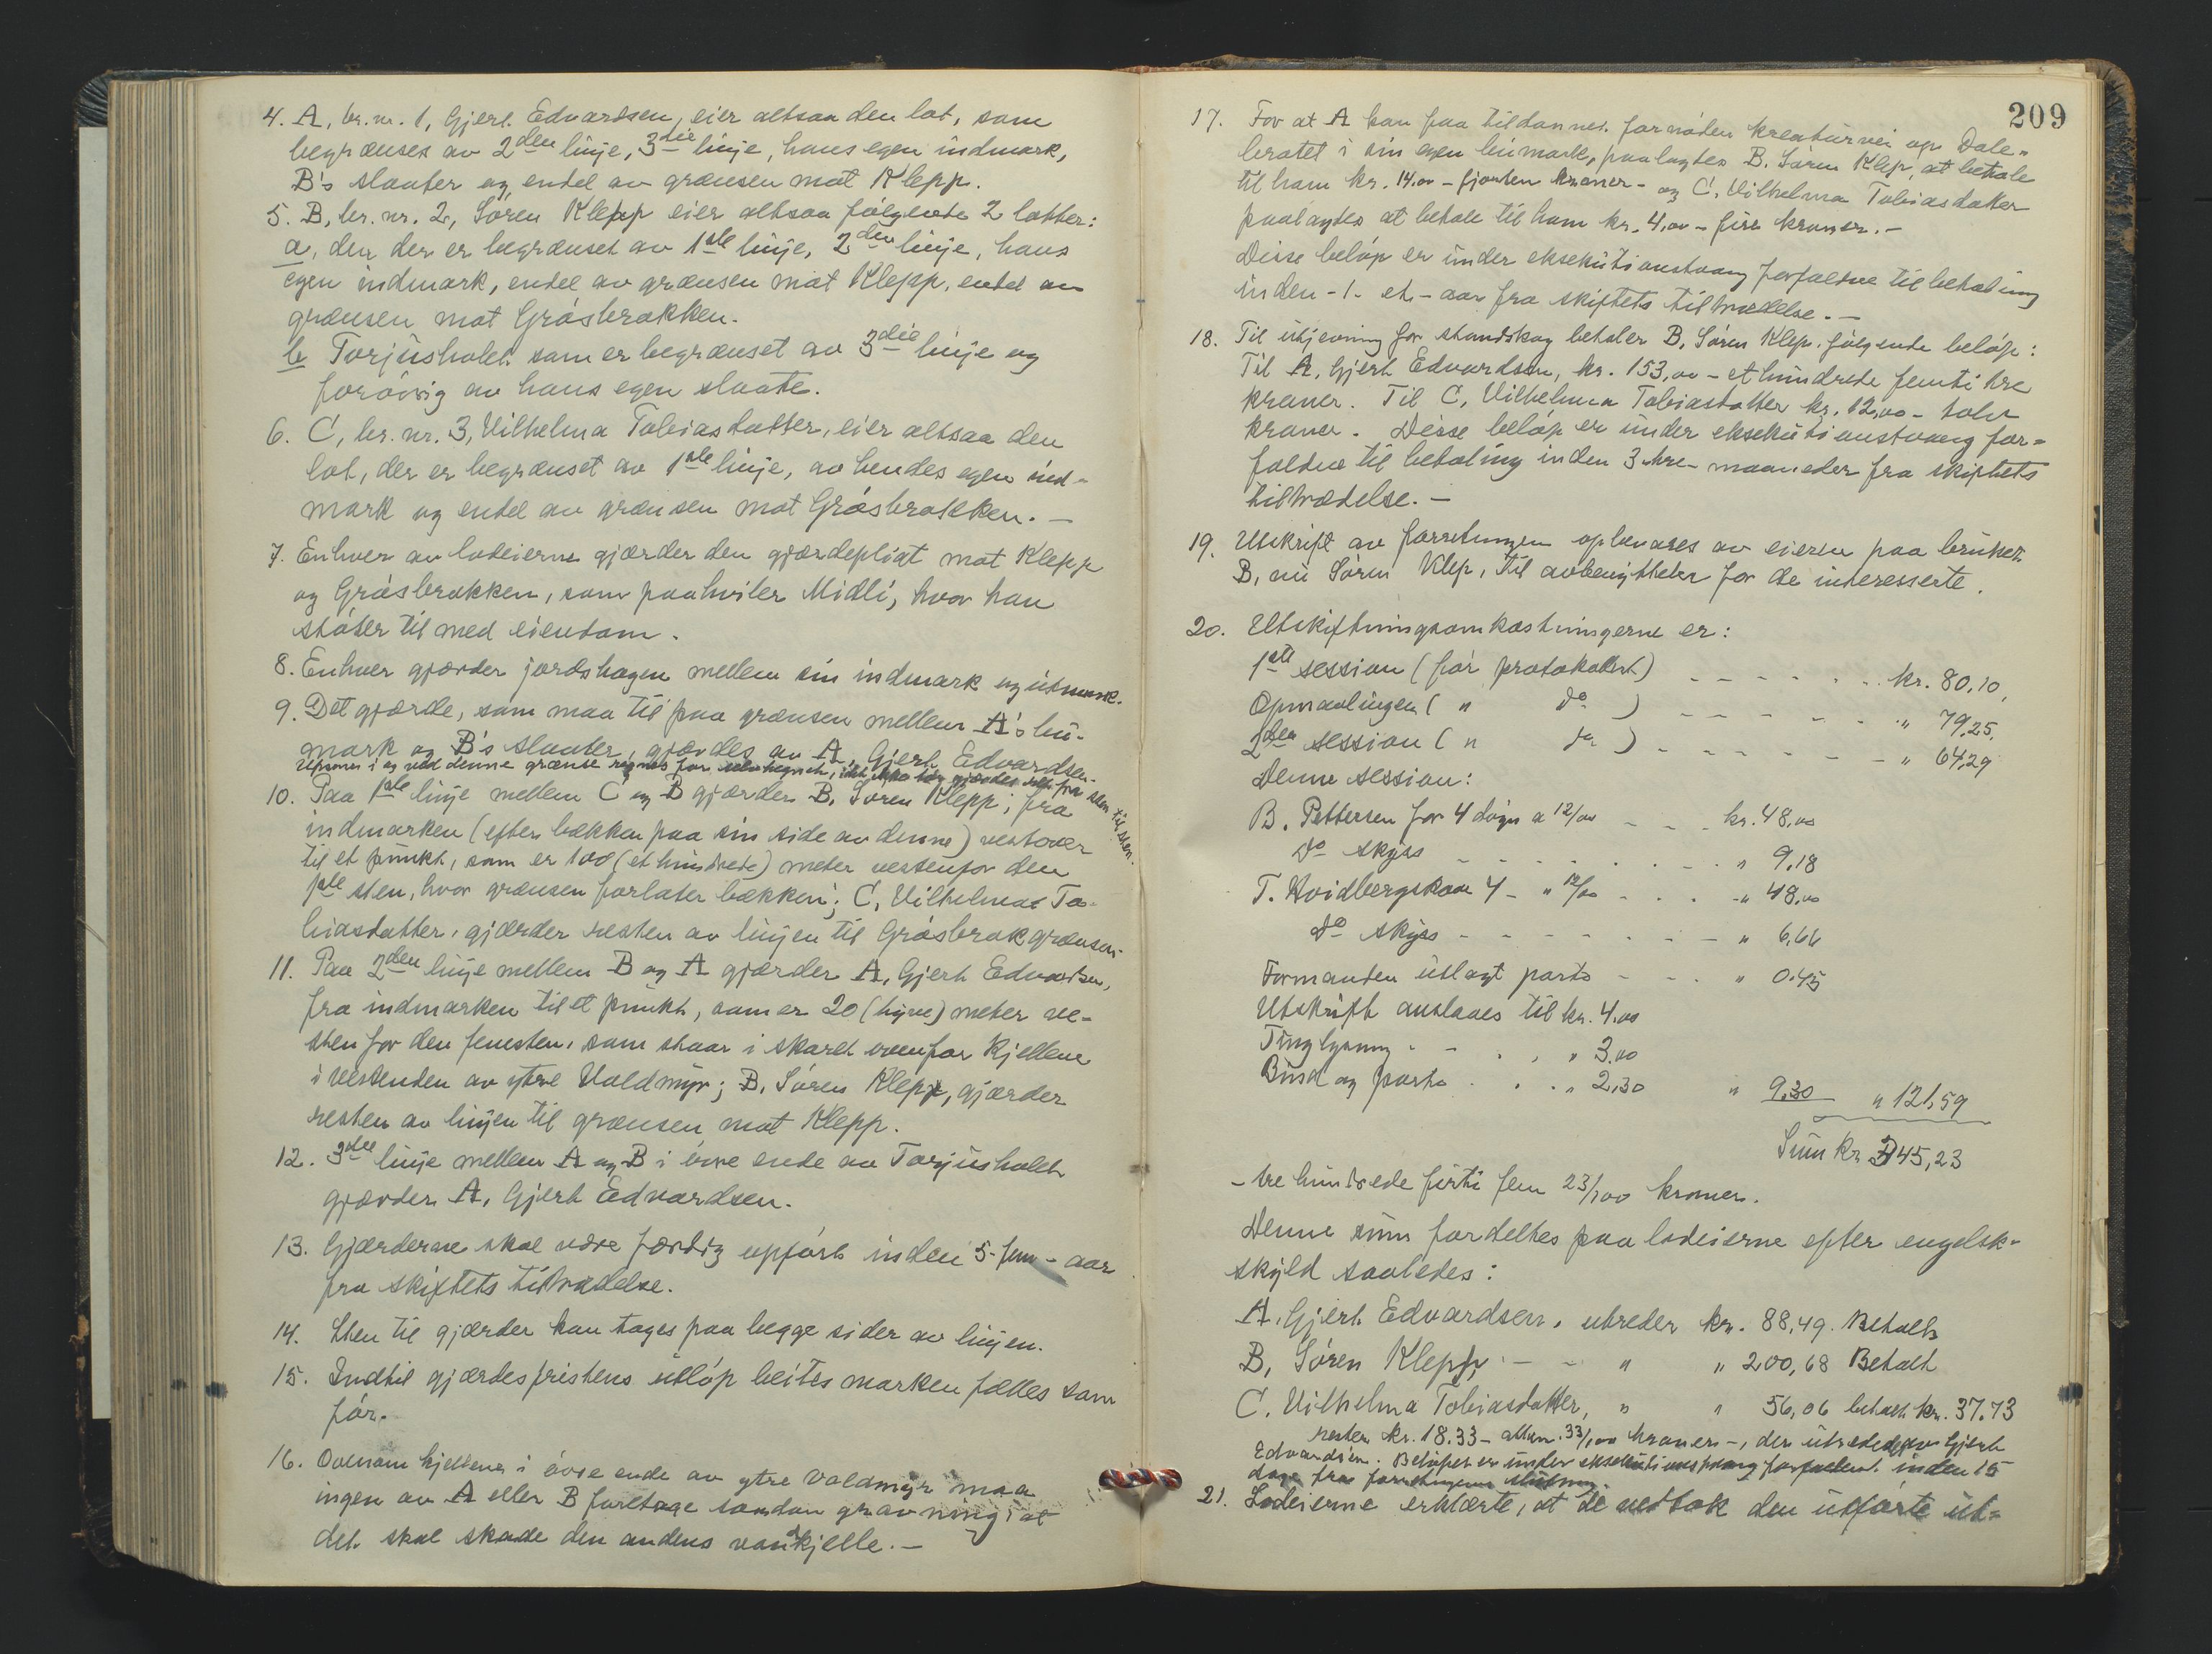 4. A, br. nr. 1, Gjert Edvardsen, eier altsaa den lot, som
begrænses av 2den linje, 3die linje, hans egen indmark,
B's slaater og endel av grænsen mot Klepp.
5. B, br. nr. 2, Sören Klepp eier altsaa følgende 2 lotter:
a, den der er begrænset av 1ste linje, 2den linje, hans
egen indmark, endel av grænsen mot Klepp, endel av
grænsen mot Gråsbrækken.
b Torjusholet som er begrænset av 3die linje og
forøvrig av hans egen slaate.
6. C, br. nr. 3, Vilhelma Tobiasdatter, eier altsaa den
lot, der er begrænset av 1ste linje, av hendes egen ind-
mark og endel av grænsen mot Gråsbrækken. —
7. Enhver av lodeierne gjærder den gjærdepligt mot Klepp
og Gråsbrækken, som paahviler Midli, hvor han
støter til med eiendom.
8. Enhver gjærder jordshagen mellem sin indmark og utmark.
9. Det gjærde, som maa til paa grænsen mellem A's hii-
mark og B's slaater, gjærdes av A, Gjert Edvardsen.
i og ved denne grænse regnes for
10. Paa 1ste linje mellem C og B gjærder B, Sören Klepp, fra
indmarken (efter bækken paa sin side av denne) vestover
til et punkt, som er 100 (et hundrede) meter vestenfor den
1ste sten, hvor grænsen forlater bækken; C, Vilhelma To-
biasdatter, gjærder resten av linjen til Gråsbrækgrænsen.
11. Paa 2den linje mellem B og A gjærder A, Gjert Edvardsen,
fra indmarken til et punkt, som er 20 (tyve) meter ve-
sten for den femsten, som staar i skaret ovenfor Kjellene
i vestenden av ytre Valdmyr; B, Sören Klepp, gjærder
resten av linjen til grænsen mot Klepp.
12. 3die linje mellem A og B i övre ende av Torjusholet
gjærder A, Gjert Edvardsen.
13. Gjærderne skal være færdig opført inden 5-fem-aar
fra skiftets tiltrædelse.
14. Sten til gjærder kan tages paa begge sider av linjen.
15. Indtil gjærdesfristens utløp beites marken fælles som
før.
16. Ovenom kjellene i övre ende av ytre Valdmyr maa
ingen av A eller B foretage saadan gravning at
det skal skade den andens vandkjelle. —
209
17. For at A kan faa tildannet fornøden kreaturvei op Dale-
bratet i sin egen hiimark, paalagtes B. Sören Klep, at betale
til ham kr. 14.00 - fjorten kroner - og C, Vilhelma Tobiasdatter
paalagdes at betale til ham kr. 4,00 - fire kroner. —
Disse beløp er under eksekutionstvang forfaldne til betaling
inden -1- et- aar fra skiftets tiltrædelse. —
18. Til utjevning for standskog betaler B, Sören Klep, følgende beløp:
Til A, Gjert Edvardsen, kr. 153,00 - et hundrede femti tre
kroner. Til C, Vilhelma Tobiasdatter kr. 12,00 - tolv
kroner. Disse beløp er under eksekutionstvang for-
faldne til betaling inden 3-tre- maaneder fra skiftets
tiltrædelse. —
19. Utskrift av forretningen opbevares av eieren paa bruket
B, nu Sören Klep, til avbenyttelse for de interesserte.
20. Utskiftningsomkostningerne er:
1ste session (før protokollert) - - - - kr. 80,10,
Opmaalingen ( " do ) - - - - - " 79,25,
2den session ( " do ) - - - - - " 64,29
Denne session:
B. Pettersen for 4 døgn a 12/00 - - - kr. 48,00
do skyss - - - - - " 9,18
T. Hvidbergskaar 4 - " 12/00 - - - " 48,00
do skyss - - - - - " 6,66
Formanden utlagt porto - - - " 0.45
Utskrift anslaaes til kr. 4,00
Tinglysning - - - " 3,00
Bud og porto - - " 2,30 " 9,30 " 121,59
Sum kr 345,23
- tre hundrede firti fem 23/100 kroner.
Denne sum fordeltes paa lodeierne efter engelsk-
skyld saaledes:
A, Gjert Edvardsen, utreder kr. 88,49. Betalt
B, Sören Klepp, - - " " 200,68 Betalt
C. Vilhelma Tobiasdatter, " " 56,06 betalt kr. 37.73
resten kr. 18.33 - atten 33/100 kroner -, der utredes av Gjert
Edvardsen. Beløpet er under eksekutionstvang forfaldent inden 15
dage fra forretningens slutning.
21. Lodeierne erklærte, at de vedtok den utførte ut-